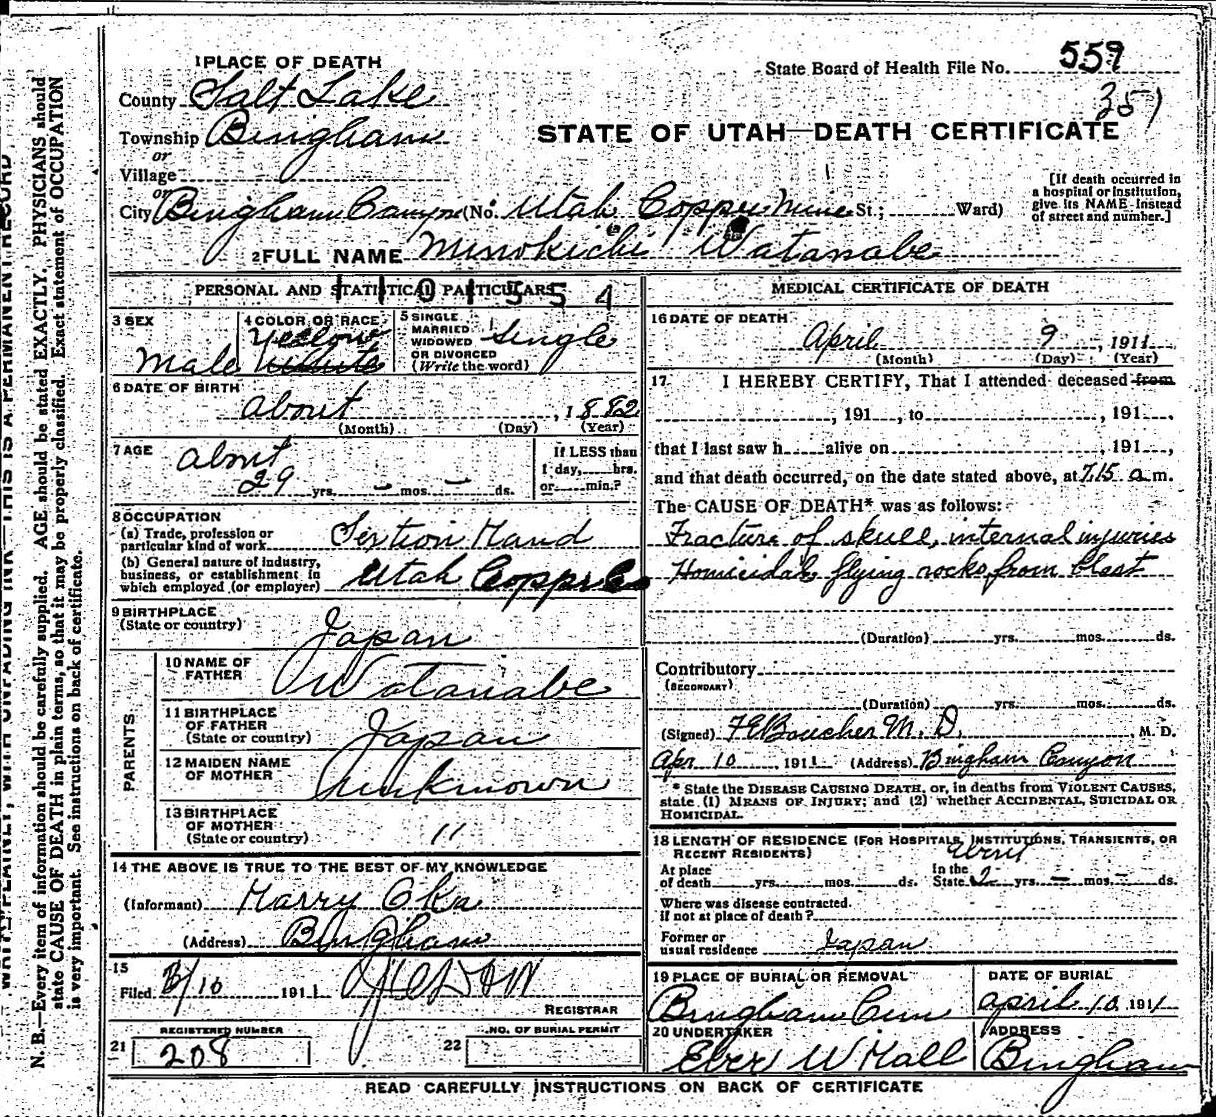 1 PLACE OF DEATH
State Board of Health File No. 559
351
County Salt Lake
Township Bingham
or
Village
or
City Bingham Canyon (No. Utah Copper Mine St.; Ward)
STATE OF UTAH—DEATH CERTIFICATE
[If death occurred in
a hospital or institution,
give its NAME instead
of street and number.]
2 FULL NAME Minokichi Watanabe
PERSONAL AND STATISTICAL PARTICULARS
1101354
3 SEX
Male
4 COLOR OR RACE
Yellow
White
5 SINGLE
MARRIED
WIDOWED
OR DIVORCED
(Write the word)
Single
6 DATE OF BIRTH
about , 1882
(Month) (Day) (Year)
7 AGE
about
29 yrs. — mos. — ds.
If LESS than
1 day, hrs.
or min.?
8 OCCUPATION
(a) Trade, profession or
particular kind of work Section Hand
(b) General nature of industry,
business, or establishment in
which employed (or employer) Utah Copper Co
9 BIRTHPLACE
(State or country)
Japan
PARENTS
10 NAME OF
FATHER
Watanabe
11 BIRTHPLACE
OF FATHER
(State or country)
Japan
12 MAIDEN NAME
OF MOTHER
Unknown
13 BIRTHPLACE
OF MOTHER
(State or country)
"
14 THE ABOVE IS TRUE TO THE BEST OF MY KNOWLEDGE
(Informant) Harry Oka
(Address) Bingham
15
Filed 1911
REGISTRAR
REGISTERED NUMBER
21 208
NO. OF BURIAL PERMIT
22
MEDICAL CERTIFICATE OF DEATH
16 DATE OF DEATH
April 9, 1911
(Month) (Day) (Year)
17 I HEREBY CERTIFY, That I attended deceased from
, 191 , to , 191 ,
that I last saw h alive on , 191 ,
and that death occurred, on the date stated above, at 7.15 a m.
The CAUSE OF DEATH* was as follows:
Fracture of skull, internal injuries
Homicidal, flying rocks from blast
(Duration) yrs. mos. ds.
Contributory
(SECONDARY)
(Duration) yrs. mos. ds.
(Signed) F E Boucher M.D. , M. D.
Apr 10, 1911 (Address) Bingham Canyon
* State the DISEASE CAUSING DEATH, or, in deaths from VIOLENT CAUSES,
state (1) MEANS OF INJURY; and (2) whether ACCIDENTAL, SUICIDAL OR
HOMICIDAL.
18 LENGTH OF RESIDENCE (FOR HOSPITALS, INSTITUTIONS, TRANSIENTS, OR
RECENT RESIDENTS)
About
At place
of death yrs. mos. ds.
In the
State 2 yrs. — mos. — ds.
Where was disease contracted
if not at place of death?
Former or
usual residence Japan
19 PLACE OF BURIAL OR REMOVAL
Bingham Cem
DATE OF BURIAL
April 10, 1911
20 UNDERTAKER
Eber W Hall
ADDRESS
Bingham
READ CAREFULLY INSTRUCTIONS ON BACK OF CERTIFICATE
WRITE PLAINLY, WITH UNFADING INK—THIS IS A PERMANENT RECORD
N. B.—Every item of information should be carefully supplied. AGE should be stated EXACTLY. PHYSICIANS should
state CAUSE OF DEATH in plain terms, so that it may be properly classified. Exact statement of OCCUPATION
is very important. See instructions on back of certificate.